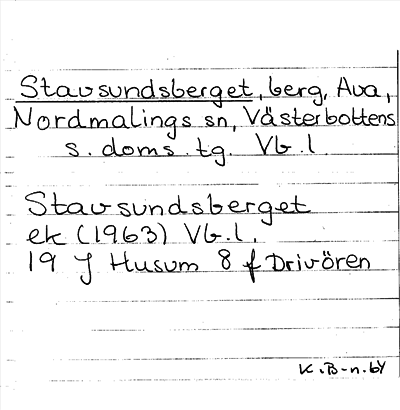 Stavsundsberget, berg, Ava,
Nordmalings sn, Västerbottens
s. doms. tg. Vb. l
Stavsundsberget
ek (1963) Vb. l.
19 J Husum 8 f Drivören
K. B-n. 64